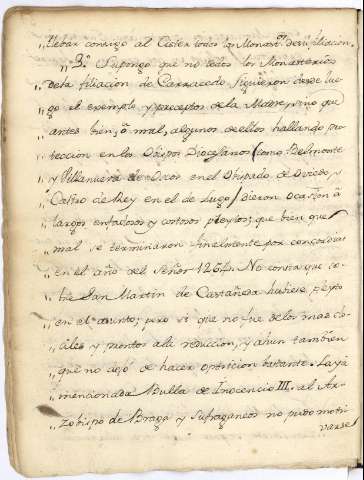 „llebar consigo al Cister todos los Monast.os de su filiacion.
„ 3.o Supongo que no todos los Monasterios
„ de la filiacion de Carracedo siguieron desde lue
„ go el exemplo y preceptos de la Madre, sino que
„ antes bien, o mal, algunos de ellos hallando pro
„ teccion en los Obispos Diocesanos (como Belmonte
„ y Villanueva de Oscos en el Obispado de Oviedo y
„ Castro de Rey en el de Lugo) dieron ocasion a
„ largos enfadosos y costosos pleytos; que bien que
„ mal se terminaron finalmente por concordias
„ en el año del Señor 1254. No consta que so-
„ bre San Martin de Castañeda hubiese pleyto
„ en el asunto; pero si que no fue de los mas do-
„ ciles y prontos a la reduccion, y ahun tambien
„ que no dejó de hacer oposicion bastante. La ya
„ mencionada Bulla de Inocencio III. al Ar-
„ zobispo de Braga y sufraganeos no pudo moti
varse